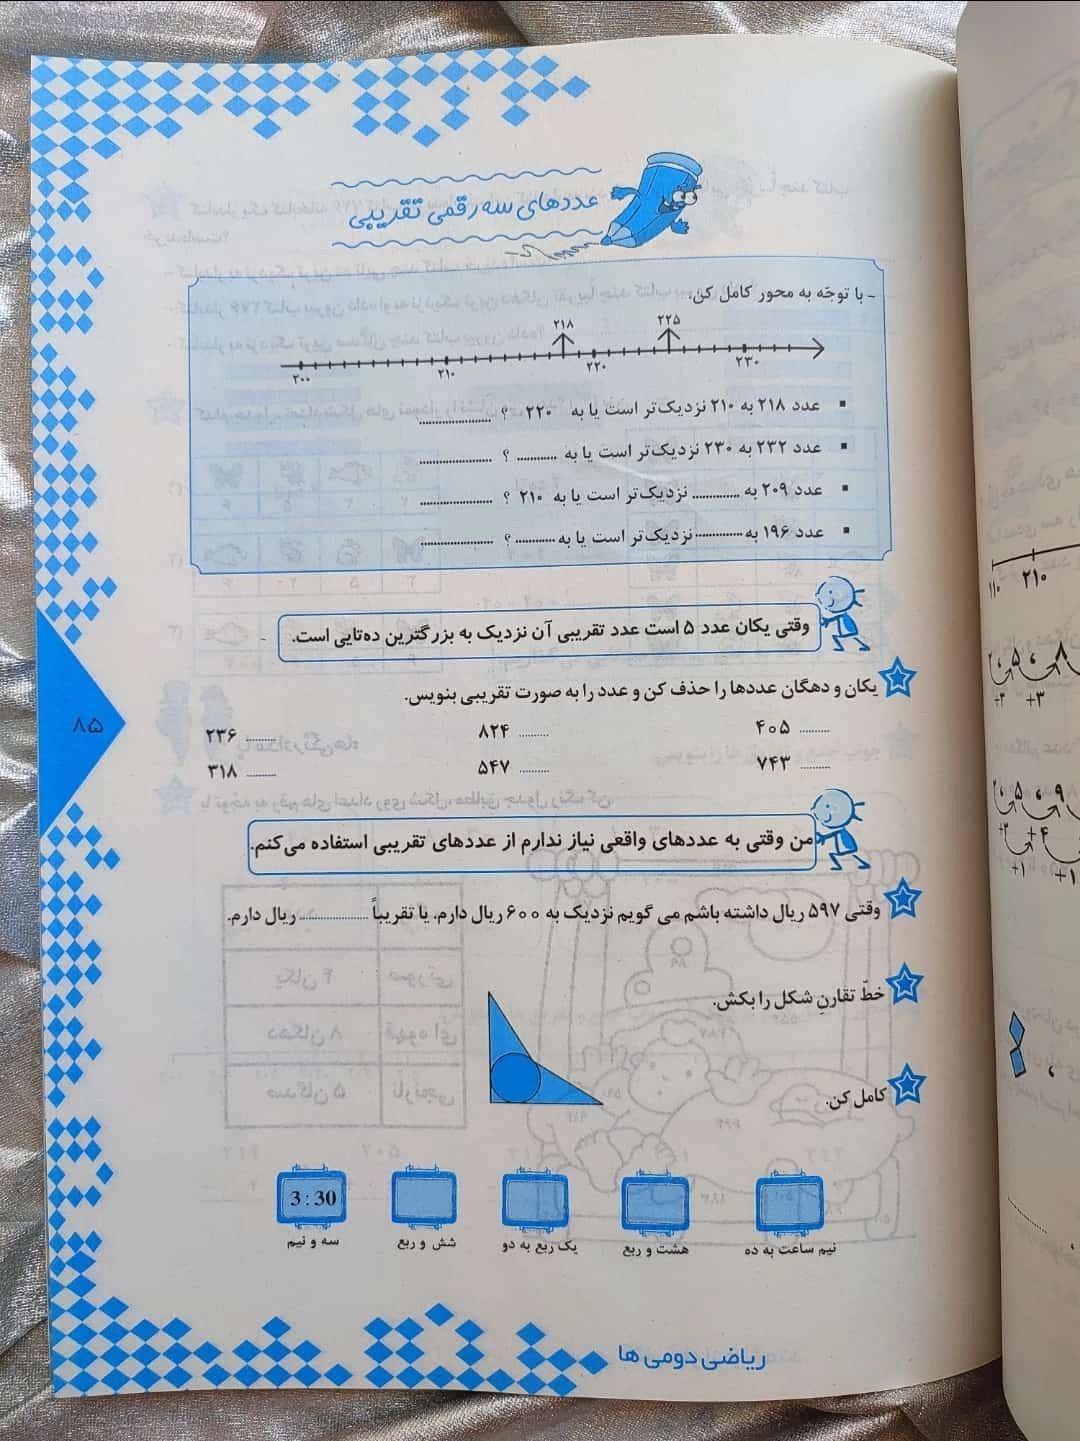 عددهای سه رقمی تقریبی
- با توجّه به محور کامل کن.
۲۱۸ ۲۲۵
۲۰۰ ۲۱۰ ۲۲۰ ۲۳۰
▪ عدد ۲۱۸ به ۲۱۰ نزدیک‌تر است یا به ۲۲۰ ؟ ..................
▪ عدد ۲۳۲ به ۲۳۰ نزدیک‌تر است یا به .......... ؟ ..................
▪ عدد ۲۰۹ به ............ نزدیک‌تر است یا به ۲۱۰ ؟ ..................
▪ عدد ۱۹۶ به ............ نزدیک‌تر است یا به .......... ؟ ..................
وقتی یکان عدد ۵ است عدد تقریبی آن نزدیک به بزرگترین ده‌تایی است.
یکان و دهگان عددها را حذف کن و عدد را به صورت تقریبی بنویس.
۲۳۶ ........ ۸۲۴ ........ ۴۰۵ ........
۳۱۸ ........ ۵۴۷ ........ ۷۴۳ ........
۸۵
من وقتی به عددهای واقعی نیاز ندارم از عددهای تقریبی استفاده می‌کنم.
وقتی ۵۹۷ ریال داشته باشم می گویم نزدیک به ۶۰۰ ریال دارم. یا تقریباً .................. ریال دارم.
خطّ تقارنِ شکل را بکش.
کامل کن.
3 : 30
نیم ساعت به ده هشت و ربع یک ربع به دو شش و ربع سه و نیم
ریاضی دومی ها
۱۱۰ ۲۱۰